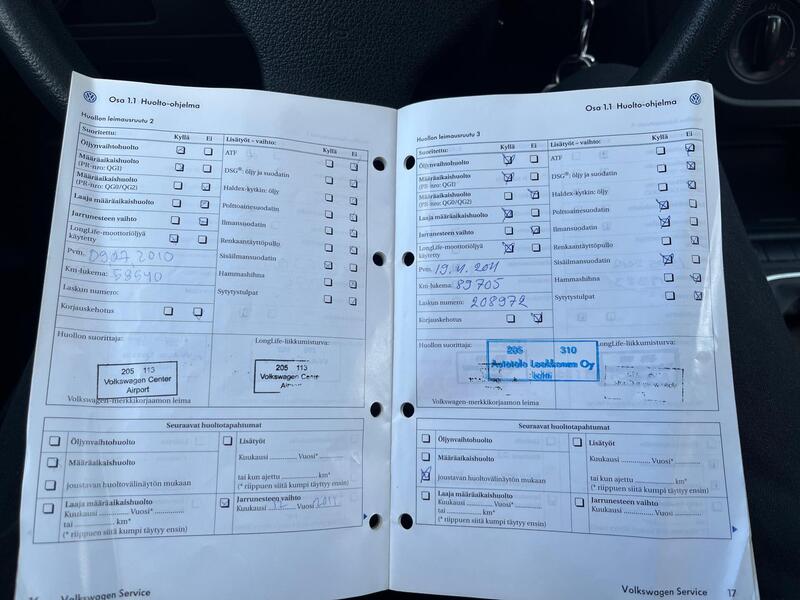 Osa 1.1 Huolto-ohjelma
Huollon leimausruutu 2
Suoritettu: Kyllä Ei
Öljynvaihtohuolto
Määräaikaishuolto
(PR-nro: QG1)
Määräaikaishuolto
(PR-nro: QG0/QG2)
Laaja määräaikaishuolto
Jarrunesteen vaihto
LongLife-moottoriöljyä
käytetty
Pvm.
Km-lukema: 58540
Laskun numero:
Korjauskehotus
Lisätyöt – vaihto: Kyllä Ei
ATF
DSG®: öljy ja suodatin
Haldex-kytkin: öljy
Polttoainesuodatin
Ilmansuodatin
Renkaantäyttöpullo
Sisäilmansuodatin
Hammashihna
Sytytystulpat
Huollon suorittaja:
205 113
Volkswagen Center
Airport
Volkswagen-merkkikorjaamon leima
LongLife-liikkumisturva:
205 113
Volkswagen Center
Airport
Seuraavat huoltotapahtumat
Öljynvaihtohuolto
Määräaikaishuolto
joustavan huoltovälinäytön mukaan
Laaja määräaikaishuolto
Kuukausi ............ Vuosi*............
tai .................. km*
(* riippuen siitä kumpi täytyy ensin)
Lisätyöt
Kuukausi ............ Vuosi*............
tai kun ajettu .................. km*
(* riippuen siitä kumpi täytyy ensin)
Jarrunesteen vaihto
Kuukausi Vuosi
Volkswagen Service
Osa 1.1 Huolto-ohjelma
Huollon leimausruutu 3
Suoritettu: Kyllä Ei
Öljynvaihtohuolto
Määräaikaishuolto
(PR-nro: QG1)
Määräaikaishuolto
(PR-nro: QG0/QG2)
Laaja määräaikaishuolto
Jarrunesteen vaihto
LongLife-moottoriöljyä
käytetty
Pvm. 19.4.2011
Km-lukema: 89705
Laskun numero: 208972
Korjauskehotus
Lisätyöt – vaihto: Kyllä Ei
ATF
DSG®: öljy ja suodatin
Haldex-kytkin: öljy
Polttoainesuodatin
Ilmansuodatin
Renkaantäyttöpullo
Sisäilmansuodatin
Hammashihna
Sytytystulpat
Huollon suorittaja:
205 310
Autotalo Laakkonen Oy
Lahti
Volkswagen-merkkikorjaamon leima
LongLife-liikkumisturva:
Seuraavat huoltotapahtumat
Öljynvaihtohuolto
Määräaikaishuolto
joustavan huoltovälinäytön mukaan
Laaja määräaikaishuolto
Kuukausi ............ Vuosi*............
tai .................. km*
(* riippuen siitä kumpi täytyy ensin)
Lisätyöt
Kuukausi ............ Vuosi*............
tai kun ajettu .................. km*
(* riippuen siitä kumpi täytyy ensin)
Jarrunesteen vaihto
Kuukausi ............ Vuosi ............
Volkswagen Service 17